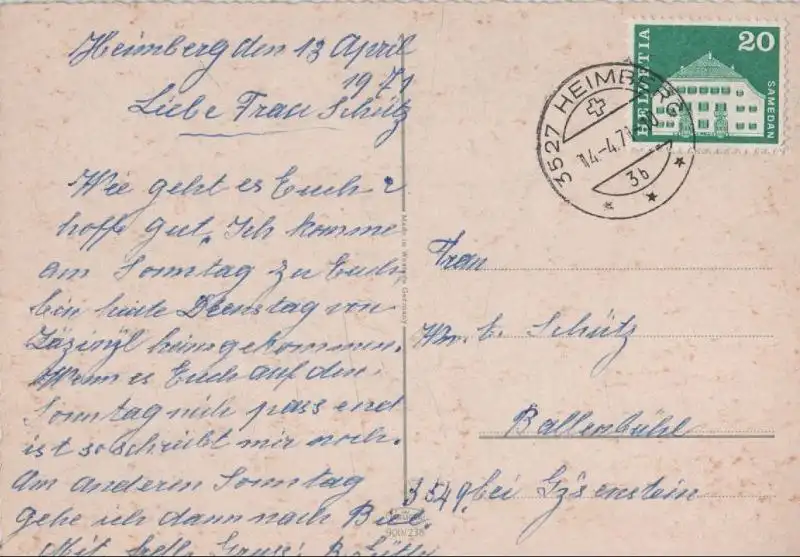 Heimberg den 13 April
1971
Liebe Frau Schütz
Wie geht es Euch?
hoffe gut. Ich komme
am Sonntag zu Euch
bin heute Dienstag von
heimgekommen.
Wenn es Euch auf den
Sonntag nich passend
ist so schreibt mir noch.
Am anderen Sonntag
gehe ich dann nach Biel.
Mit Gruss: B.
Made in Western Germany
900/238
HELVETIA
20
SAMEDAN
3527 HEIMBERG
14.-4.71
3b
Frau
Schütz
Ballenbühl
3549 bei Gysenstein